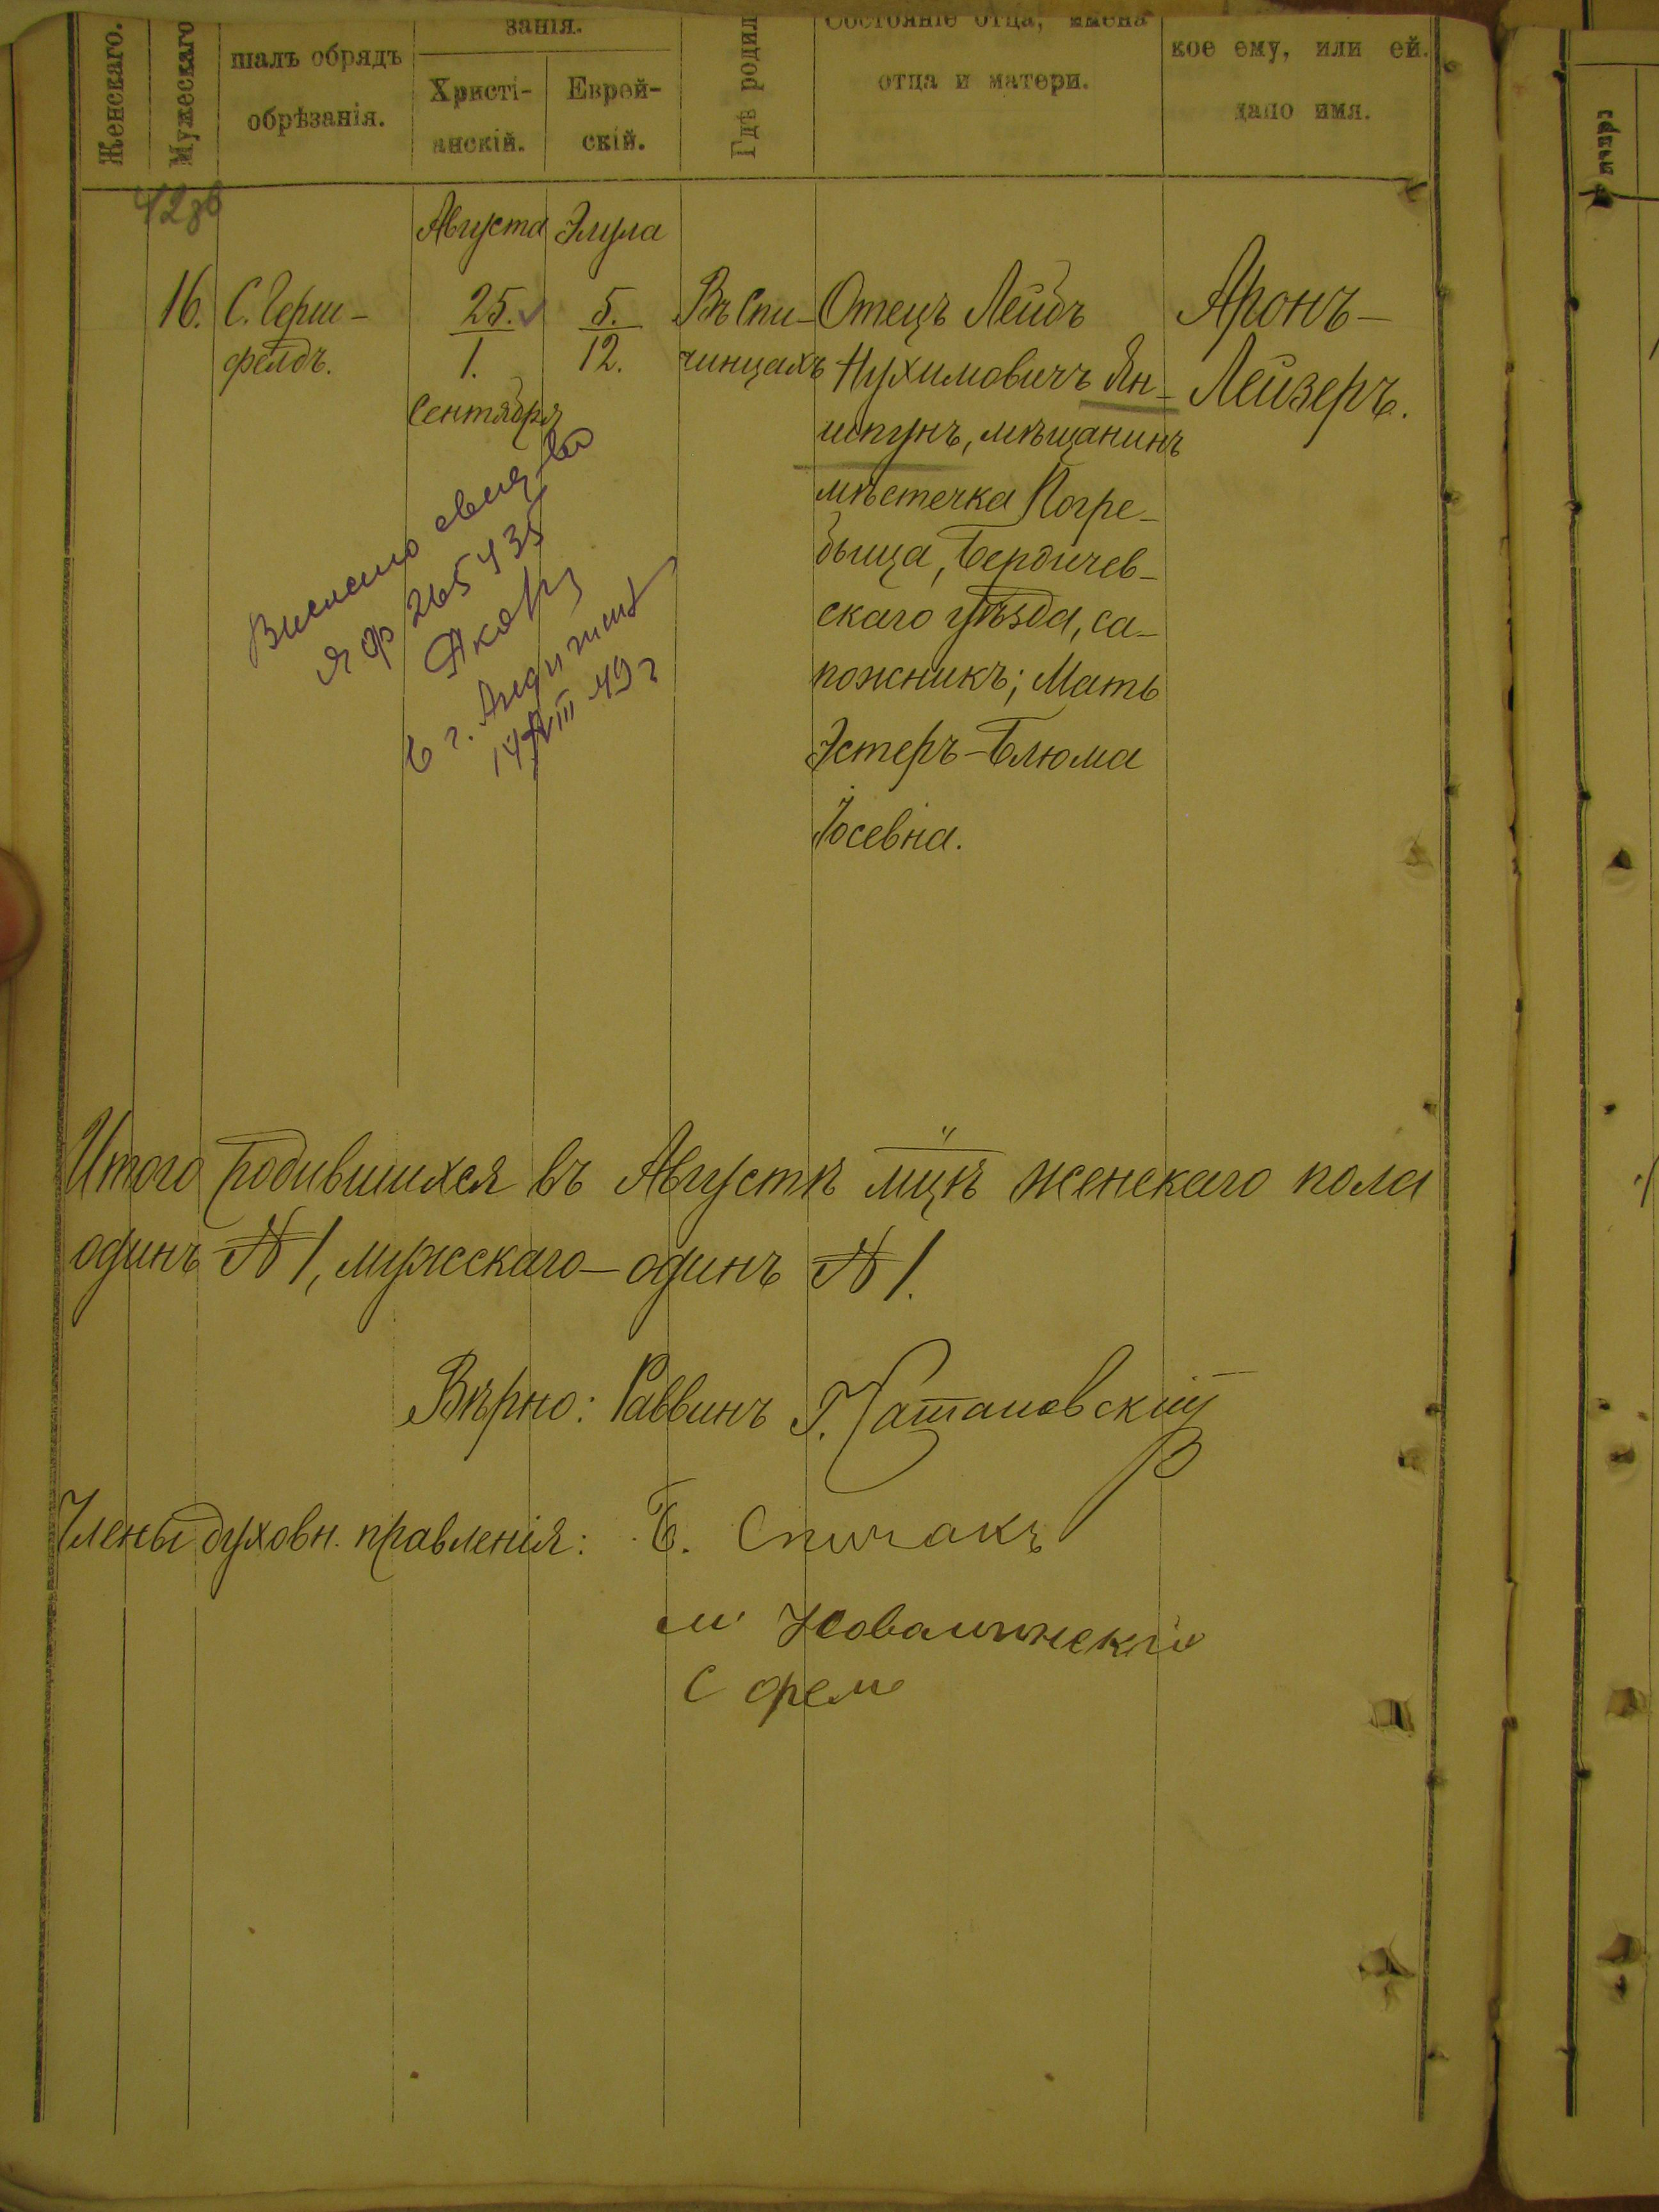 Женскаго.
Мужескаго
шалъ обрядъ
обрѣзанія.
занія.
Христі-
анскій.
Еврей-
скій.
Гдѣ родил
Состояніе отца, имена
отца и матери.
кое ему, или ей.
дано имя.
Августа Элула
16. С. Герш-
фелдъ.
25.
1.
Сентября
5.
12.
Въ Спи-
чинцахъ
Отецъ Лейбъ
Нухимовичъ Ян-
шпунъ, мѣщанинъ
мѣстечка Погре-
бища, Бердичев-
скаго уѣзда, са-
пожникъ; Мать
Эстеръ-Блюма
Іосевна.
Аронъ-
Лейзеръ.
265435
в г.
14/VIII 49 г
Итого родившихся въ Августѣ мцѣ женскаго пола
одинъ № 1, мужескаго - одинъ № 1.
Вѣрно: Раввинъ Г.
Члены духовн. правленія: Б. Спичакъ